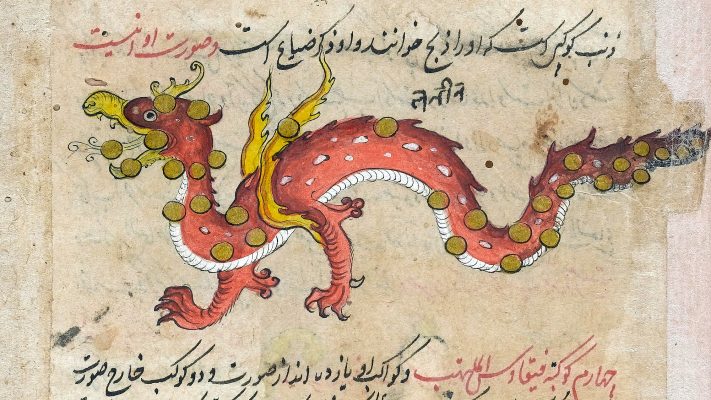 ذنب کوکبی است که او را ذیخ خوانند و او ذکر ضباع است و صورت او اینست
چهارم کوکبه الملتهب و کواکب او یازده اند از صورت و دو کوکب خارج صورت